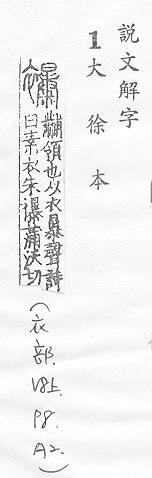 說文解字
1大徐本
襮 黼領也从衣暴聲詩
曰素衣朱襮蒲沃切
(衣部. V8上. P8. A2.)